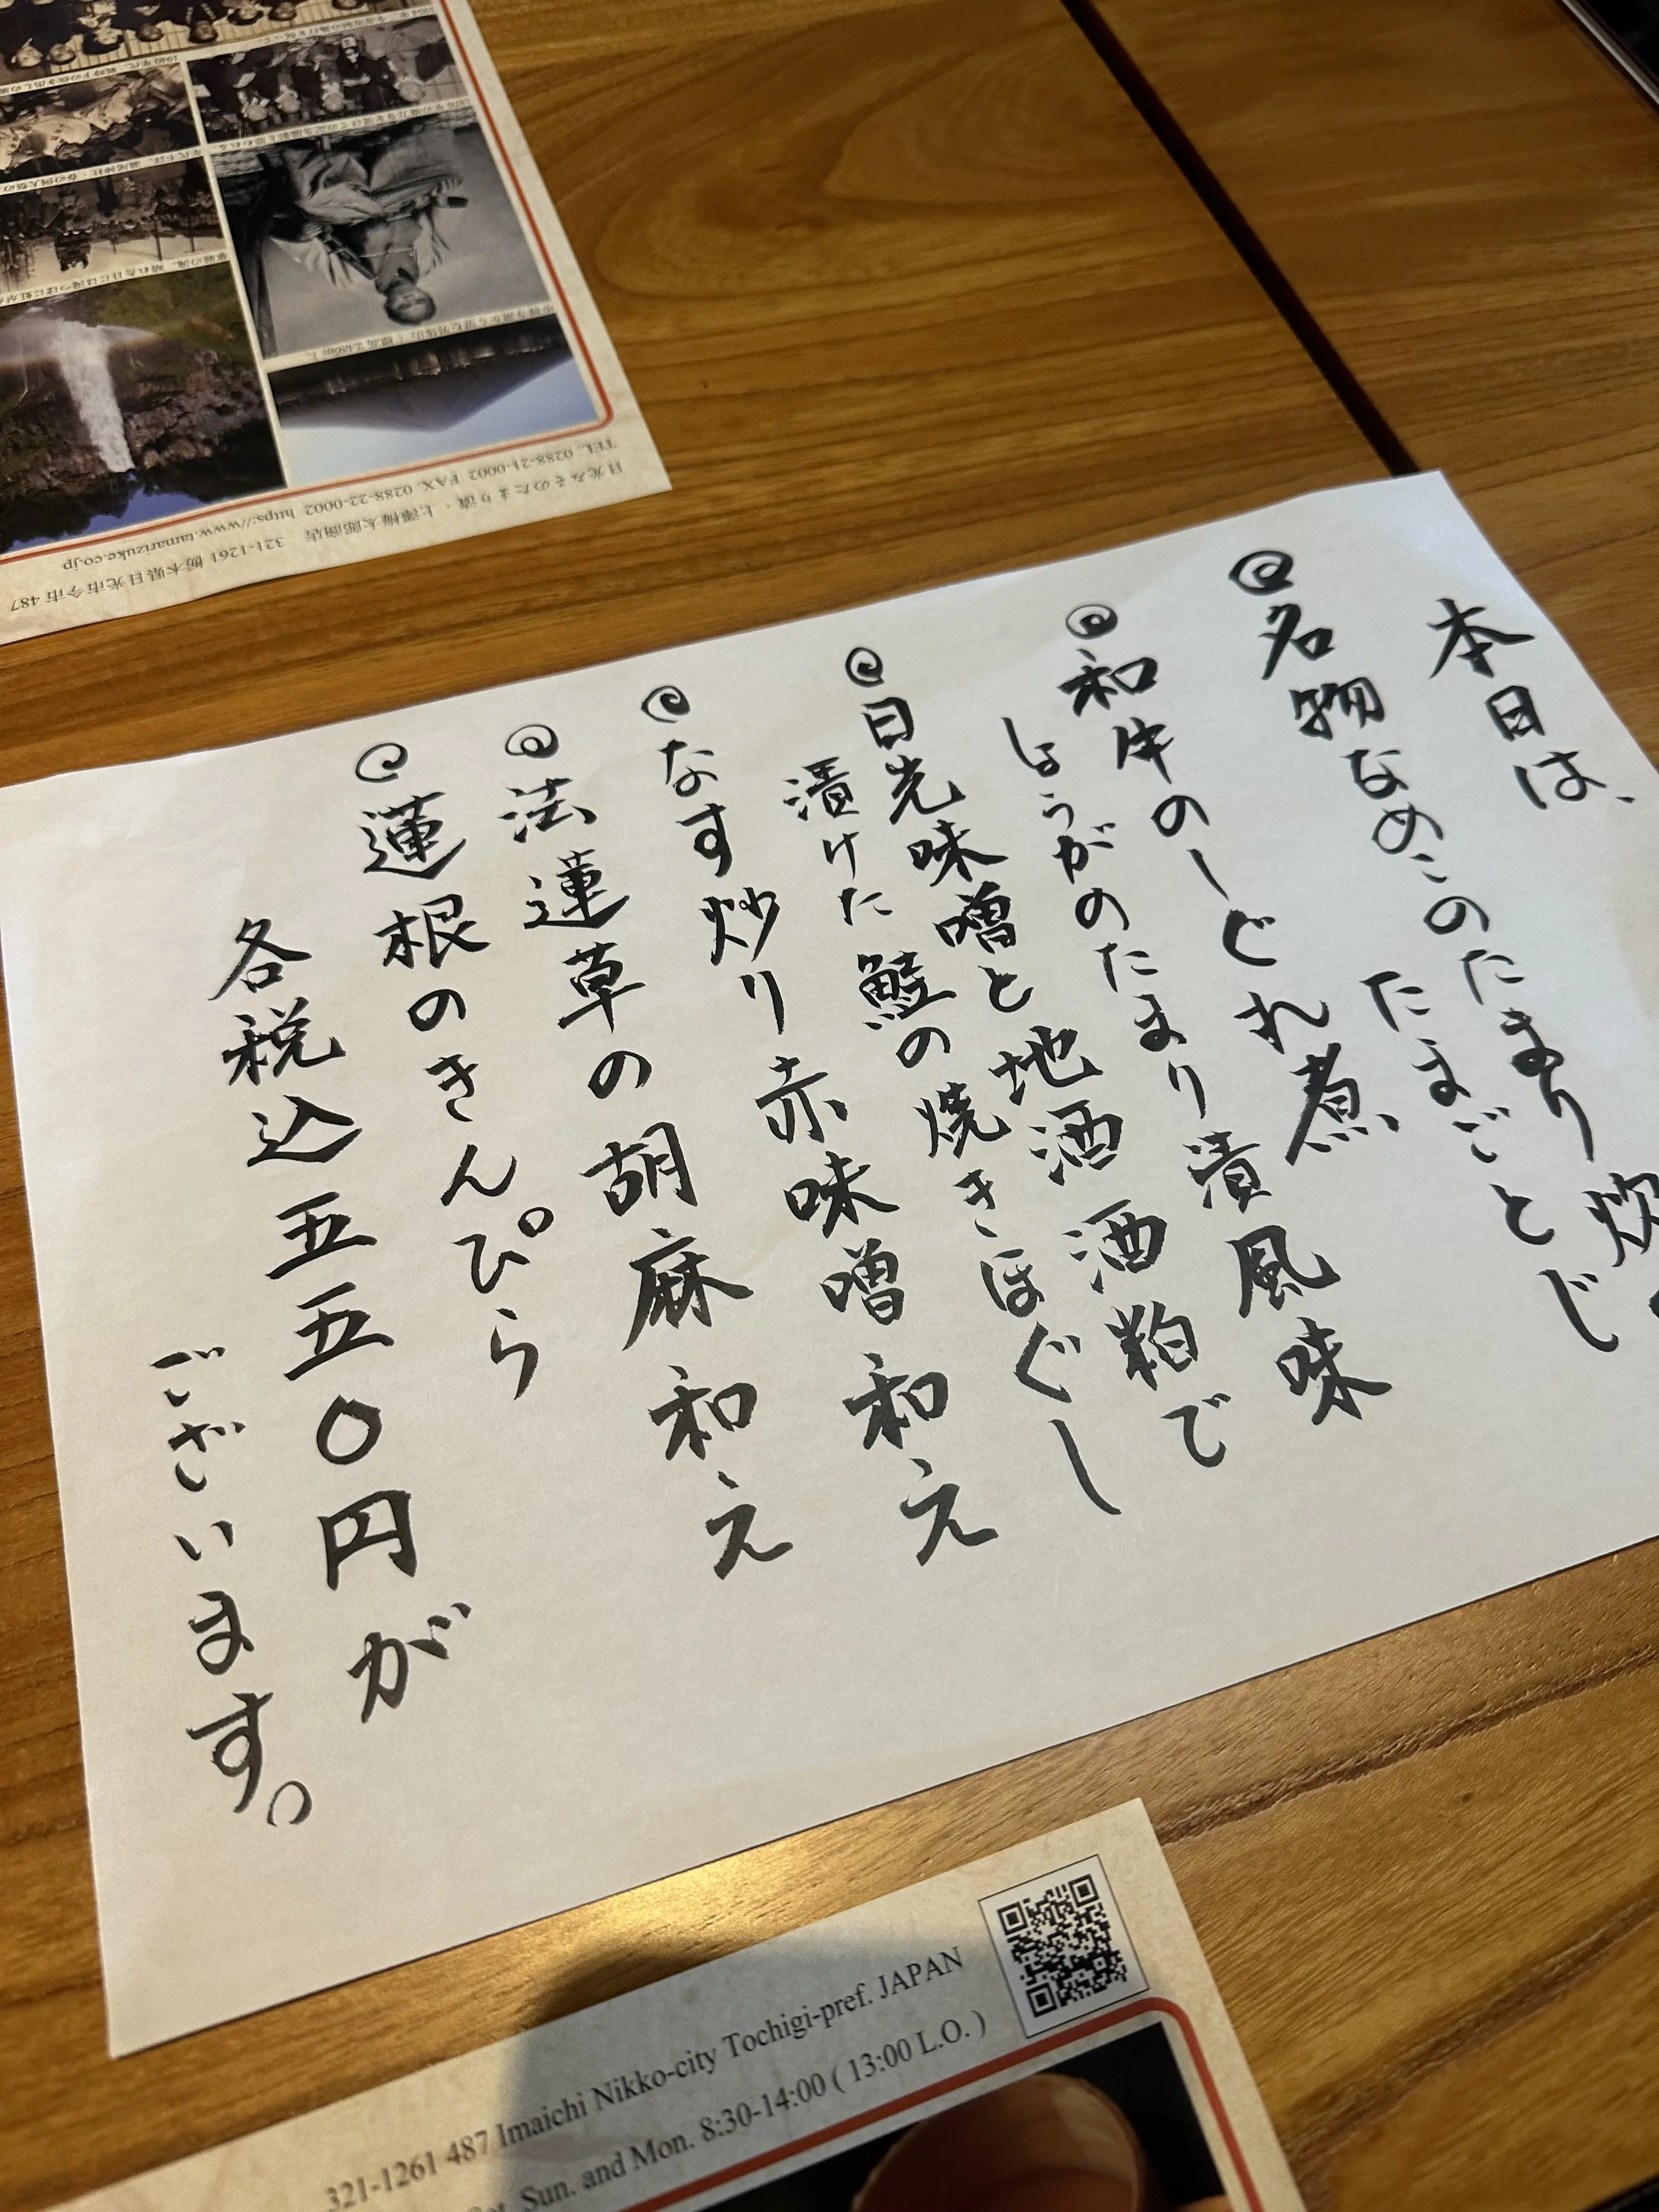 本日は、
名物なめこのたまり炊
たまごとじ
和牛のしぐれ煮
しょうがのたまり漬風味
日光味噌と地酒酒粕で
漬けた鮭の焼きほぐし
なす炒り赤味噌和え
法蓮草の胡麻和え
蓮根のきんぴら
各税込五五〇円が
ございます。
日光みそのたまり漬・上澤梅太郎商店 321-1261 栃木県日光市今市 487
TEL. 0288-21-0002 FAX. 0288-22-0002 https://www.tamarizuke.co.jp
321-1261 487 Imaichi Nikko-city Tochigi-pref. JAPAN
Sun. and Mon. 8:30-14:00 ( 13:00 L.O. )